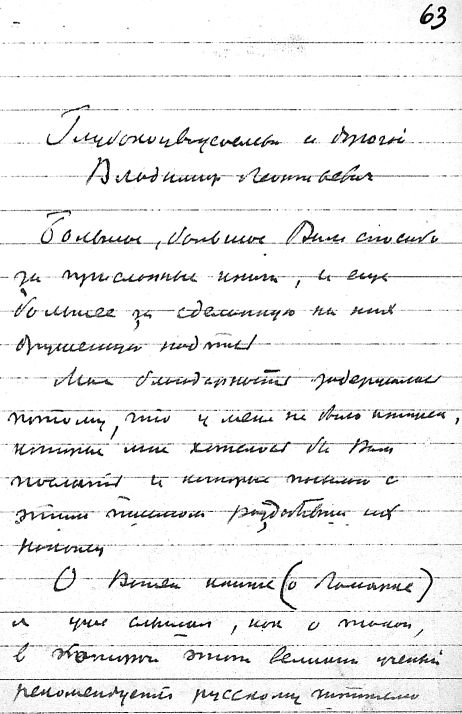 63
Глубокоуважаемый и дорогой
Владимир Леонтьевич
Большое, большое Вам спасибо
за присланные книги, и еще
большее за сделанную на них
дружескую надпись
Моя благодарность задержалась
потому, что у меня не было книжек,
которые мне хотелось бы Вам
послать и которые посылаю с
этим письмом раздобывши их
наконец
О Вашей книге (о Ламарке)
я уже слышал, как о такой,
в которой этот великий ученый
рекомендуется русскому читателю